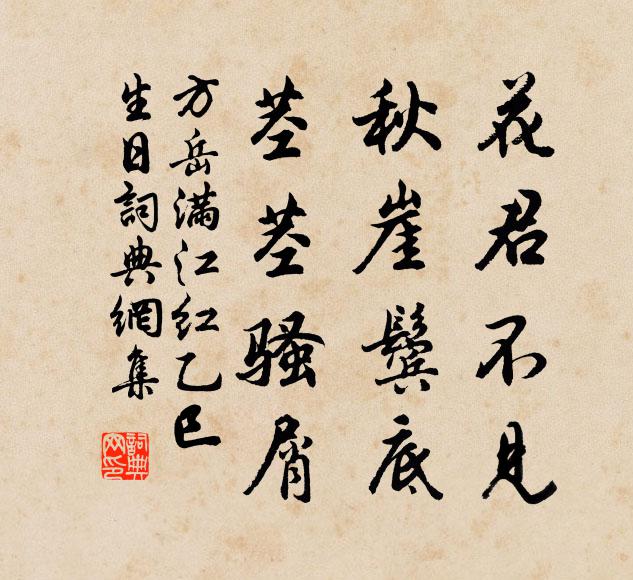 花君不见
秋崖鬓底
茎茎骚屑
方岳满江红乙巳
生日詞典網集
詞典网印